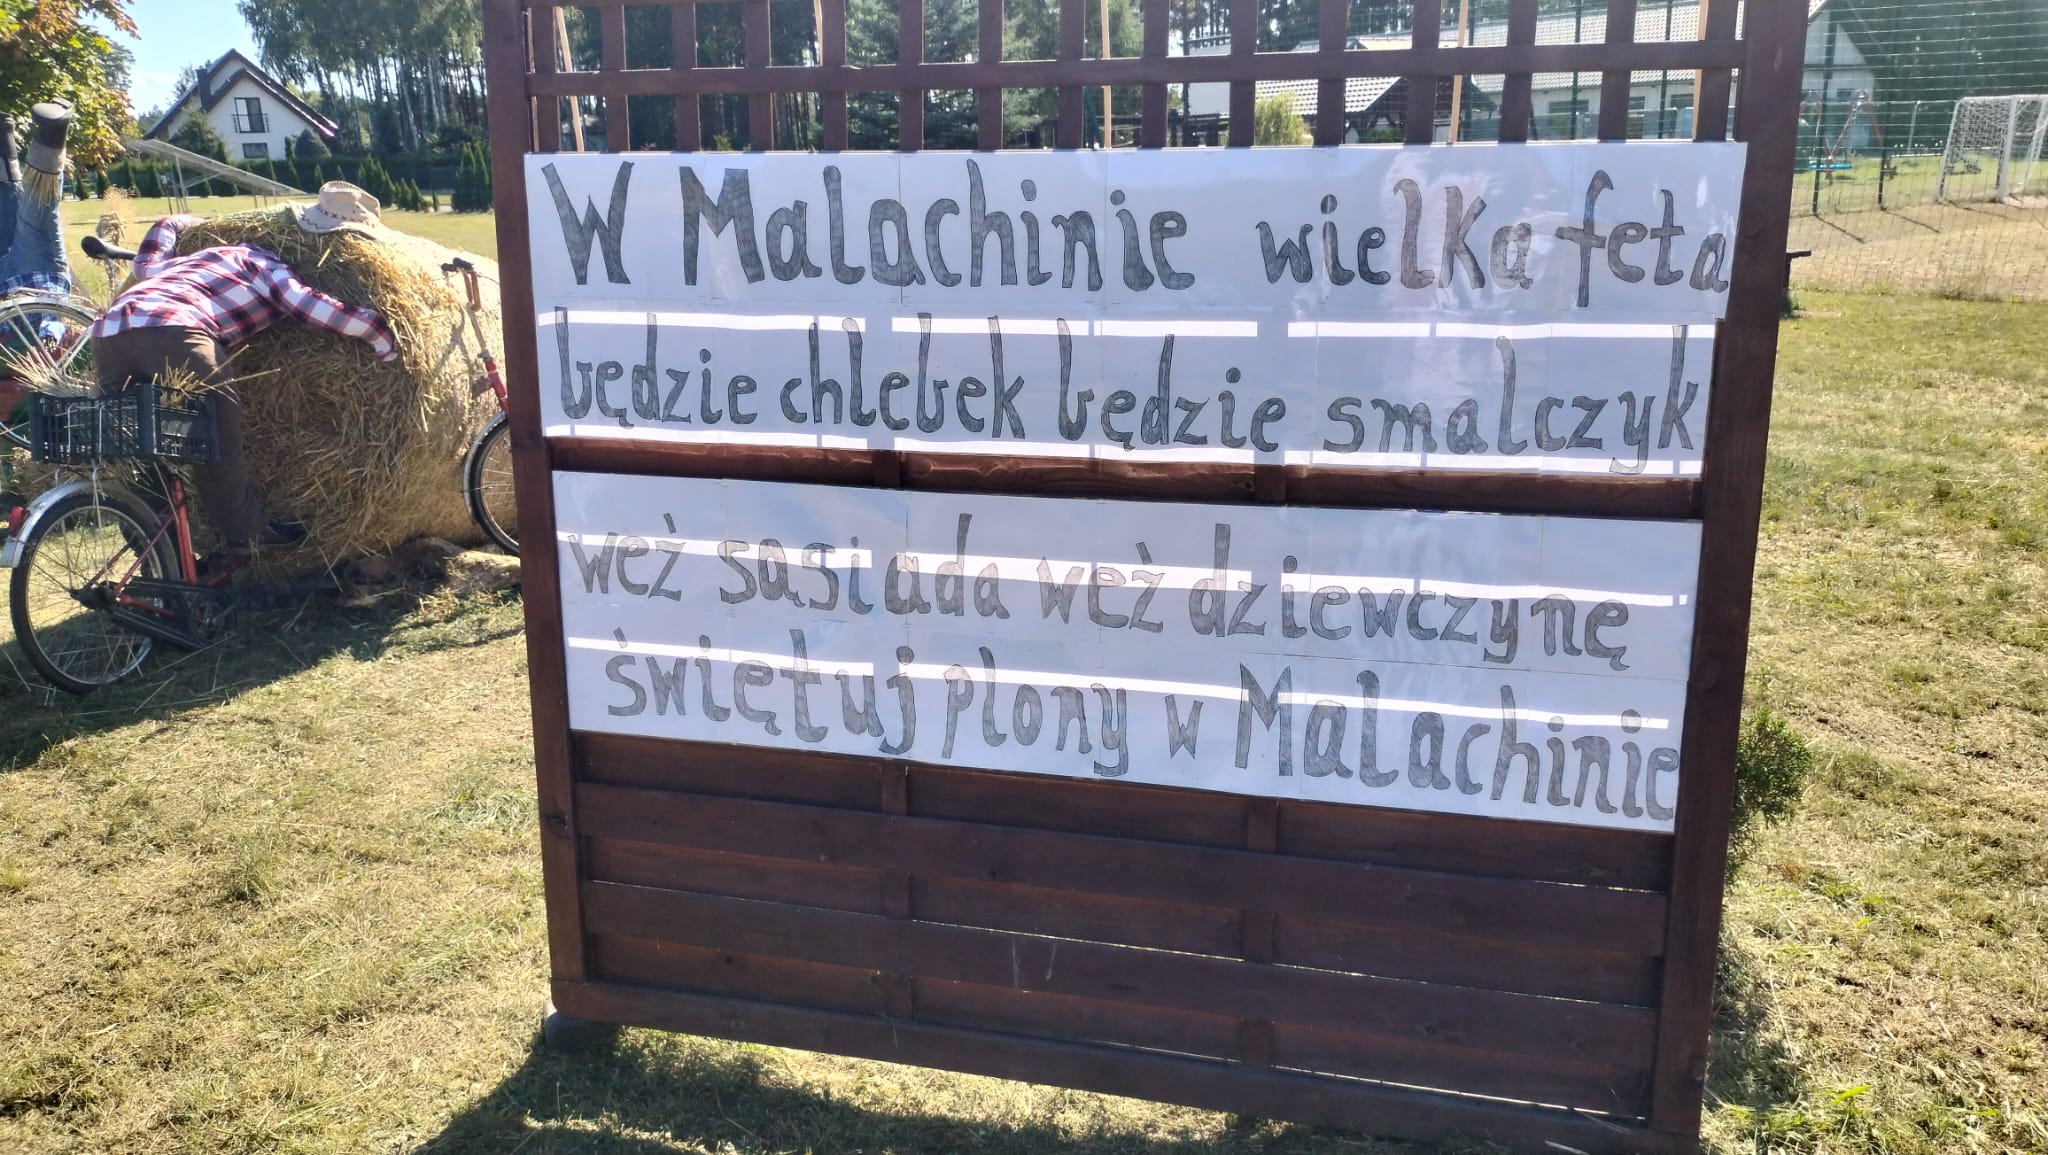 W Malachinie wielka feta
będzie chlebek będzie smalczyk
weź sąsiada weź dziewczynę
świętuj plony w Malachinie